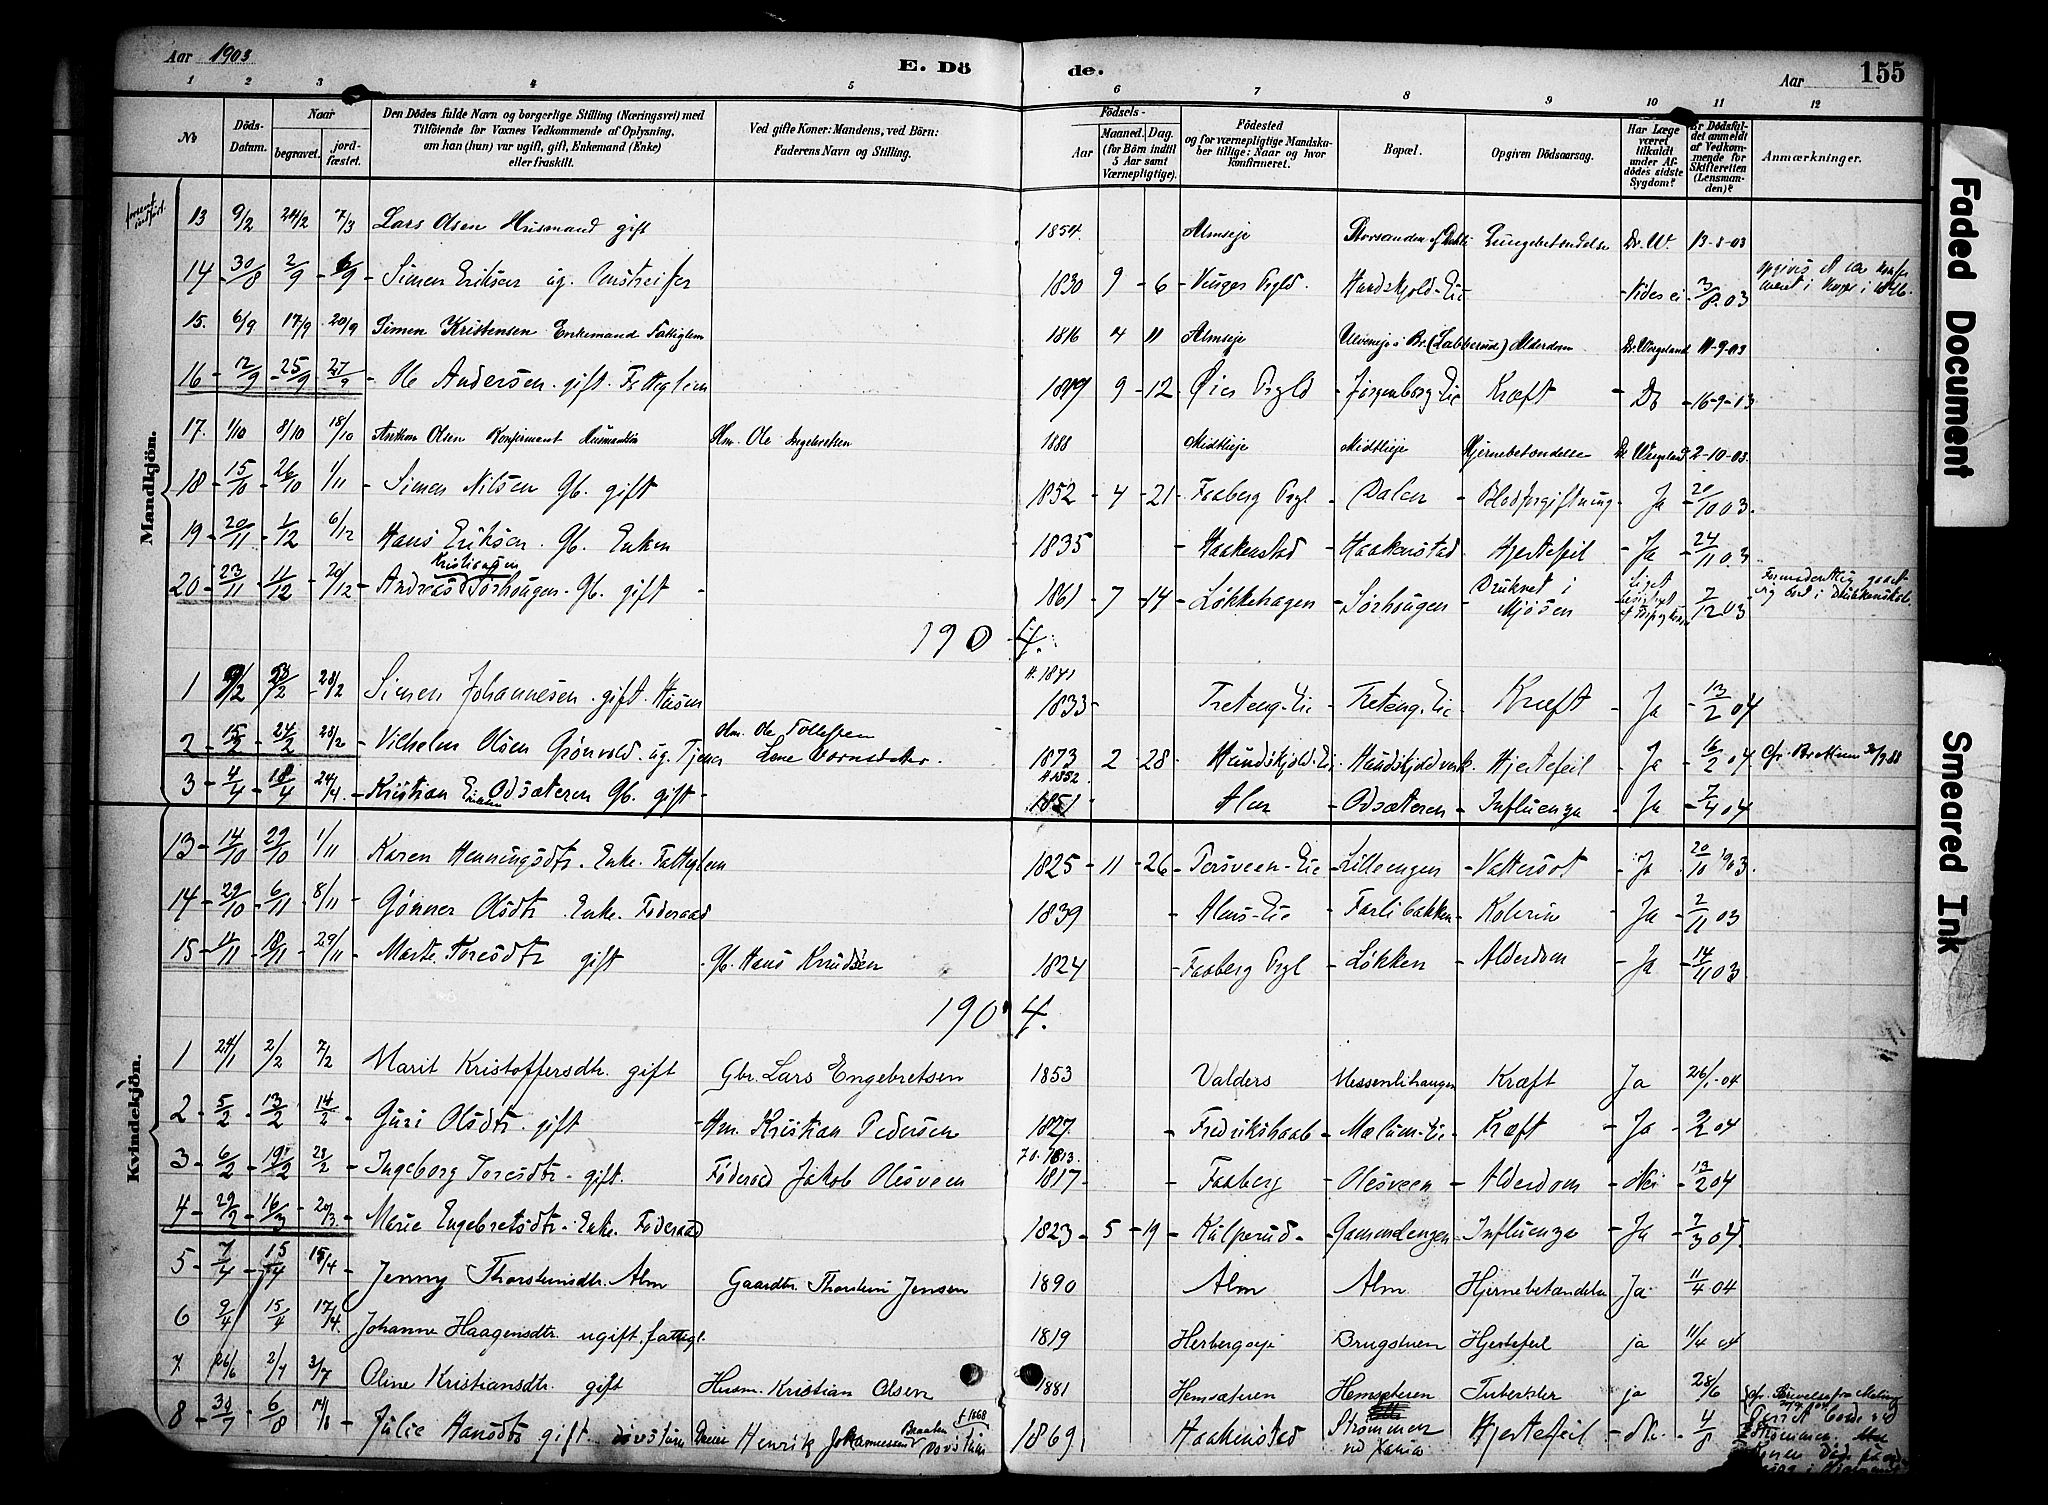 Aar 1903
E. Dö de.
Aar
155
1 2 3 4 5 6 7 8 9 10 11 12
No
Döds-Datum.
Naar
begravet.
jord-fæstet.
Den Dödes fulde Navn og borgerlige Stilling (Næringsvei) med
Tilföiende for Voxnes Vedkommende af Oplysning,
om han (hun) var ugift, gift, Enkemand (Enke)
eller fraskilt.
Ved gifte Koner: Mandens, ved Börn:
Faderens Navn og Stilling.
Födsels-
Aar
Maaned. Dag.
(for Börn indtil
5 Aar samt
Værnepligtige).
Födested
og for værnepligtige Mandska-
ber tillige: Naar og hvor
konfirmeret.
Bopæl.
Opgiven Dödsaarsag.
Har Læge
været
tilkaldt
under Af-
dödes sidste
Sygdom?
Er Dödsfal-
det anmeldt
af Vedkom-
mende for
Skifteretten
(Lensman-
den)?
Anmærkninger.
Mandkjön.
13 9/2 24/2 7/3 Lars Olsen Husmand gift 1854. Almseje Storsanden Lungebetændelse Dr. W. 13-8-03
14 30/8 2/9 6/9 Simen Eriksen ug. Omstreifer 1830 9 6 Vinger Prgld. Hundskjold-Eie Vides ei 3/8 03
15. 6/9 17/9 20/9 Simen Kristensen Enkemand Fattiglem 1816 4 11 Almseje Alderdom Dr. Vergeland 11-9-03
16 12/9 25/9 27/9 Ole Andersen gift Fattiglem 1819 9 12 Øier Prgld Jørgenborg-Eie Kræft Do 16-9-13
17. 1/10 8/10 18/10 Anthon Olsen Konfirmant Husmandssøn Hm. Ole Ingebretsen 1888 Midtlieje Midtlieje Hjernebetændelse Dr. Vergeland 2-10-03
18 15/10 26/10 1/11 Simen Nilsen Gb. gift 1852 4 21 Faaberg Prgl Dalen Blodforgiftning Ja 20/10 03
19 20/11 1/12 6/12 Hans Eriksen Gb. Enkem 1835 Haakenstad Haakenstad Hjertefeil Ja 24/11 03
20 23/11 11/12 20/12 Andreas Kristiansen Sørhougen Gb. gift 1861 7 14 Løkkehagen Sørhougen Druknet i Mjøsen 7/12 03
1904.
1 9/2 23/2 28/2 Simen Johannesen gift Husm 1833 Treteng-Eie Treteng-Eie Kræft Ja 13/2 04
2 15/2 24/2 28/2 Vilhelm Olsen Grønvold ug. Tjener Hm. Ole Tollefsen 1873 2 28 Hundskjold-Eie Hundskjoldverk Hjertefeil Ja 16/2 04
3 4/4 18/4 24/4 Kristian Eriksen Odsæteren Gb. gift 1851 Alm Odsæteren Influenza Ja 7/4 04
Kvindekjön.
13 14/10 22/10 1/11 Karen Henningsdtr. Enke. Fattiglem 1825 11 26 Torsveen-Eie Lilleengen Vattersot Ja 20/10 1903
14 29/10 6/11 8/11 Gønner Olsdtr Enke. Føderaad 1839 Alms-Eie Farlibakken Kolerin Ja 2/11 03
15 11/11 18/11 29/11 Marte Toresdtr gift Gb. Hans Knudsen 1824 Faaberg Prgl Løkken Alderdom Ja 14/11 03
1904.
1 24/1 2/2 7/2 Marit Kristoffersdtr. gift Gbr. Lars Engebretsen 1853 Valders Messenlihaugen Kræft Ja 26/1-04
2 5/2 13/2 14/2 Guri Olsdtr. gift Hm. Kristian Pedersen 1827 Fredrikshaab Mælum-Eie Kræft Ja 04
3 6/2 19/2 28/2 Ingeborg Toresdtr gift. Føderaad Jakob Olesveen 1817 Faaberg Olesveen Alderdom Nei 13/2 04
4 29/2 16/3 20/3 Marie Engebretsdtr. Enke. Føderaad 1823 5 19 Kulperud Gammelengen Influenza Ja 7/3 04
5 7/4 15/4 15/4 Jenny Thorsteinsdtr. Alm Gaardbr. Thorstein Jensen 1890 Alm Alm Hjernebetændelse Ja 11/4 04
6 9/4 15/4 17/4 Johanne Haagensdtr. ugift, fattigl. 1819 Herbergseje Brugstuen Hjertefeil ja 11/4 04
7. 26/6 2/7 3/7 Oline Kristiansdtr. gift Husm. Kristian Olsen 1881 Hemsæteren Hemsæteren Tuberkler ja 28/6
8 30/7 6/8 14/8 Julie Hansdtr gift Henrik Johannessen Braaten 1869 Haakenstad Strømmen Hjertefeil 4/8
Faded Document
Smeared Ink